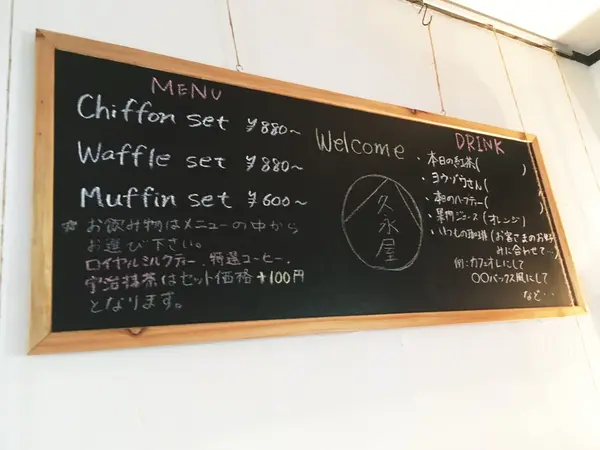 MENU
Chiffon set ¥880~
Waffle set ¥880~
Muffin set ¥600~
☆お飲み物はメニューの中から
お選び下さい。
ロイヤルミルクティー、特選コーヒー、
宇治抹茶はセット価格+100円
となります。
Welcome
久永屋
DRINK
・本日の紅茶( )
・ヨウゾウさん( )
ハーブティー( )
ジュース(オレンジ)
・いつもの珈琲(お客さまのお好
みに合わせて…)
例:カフェオレにして
〇〇バックス風にして
など・・